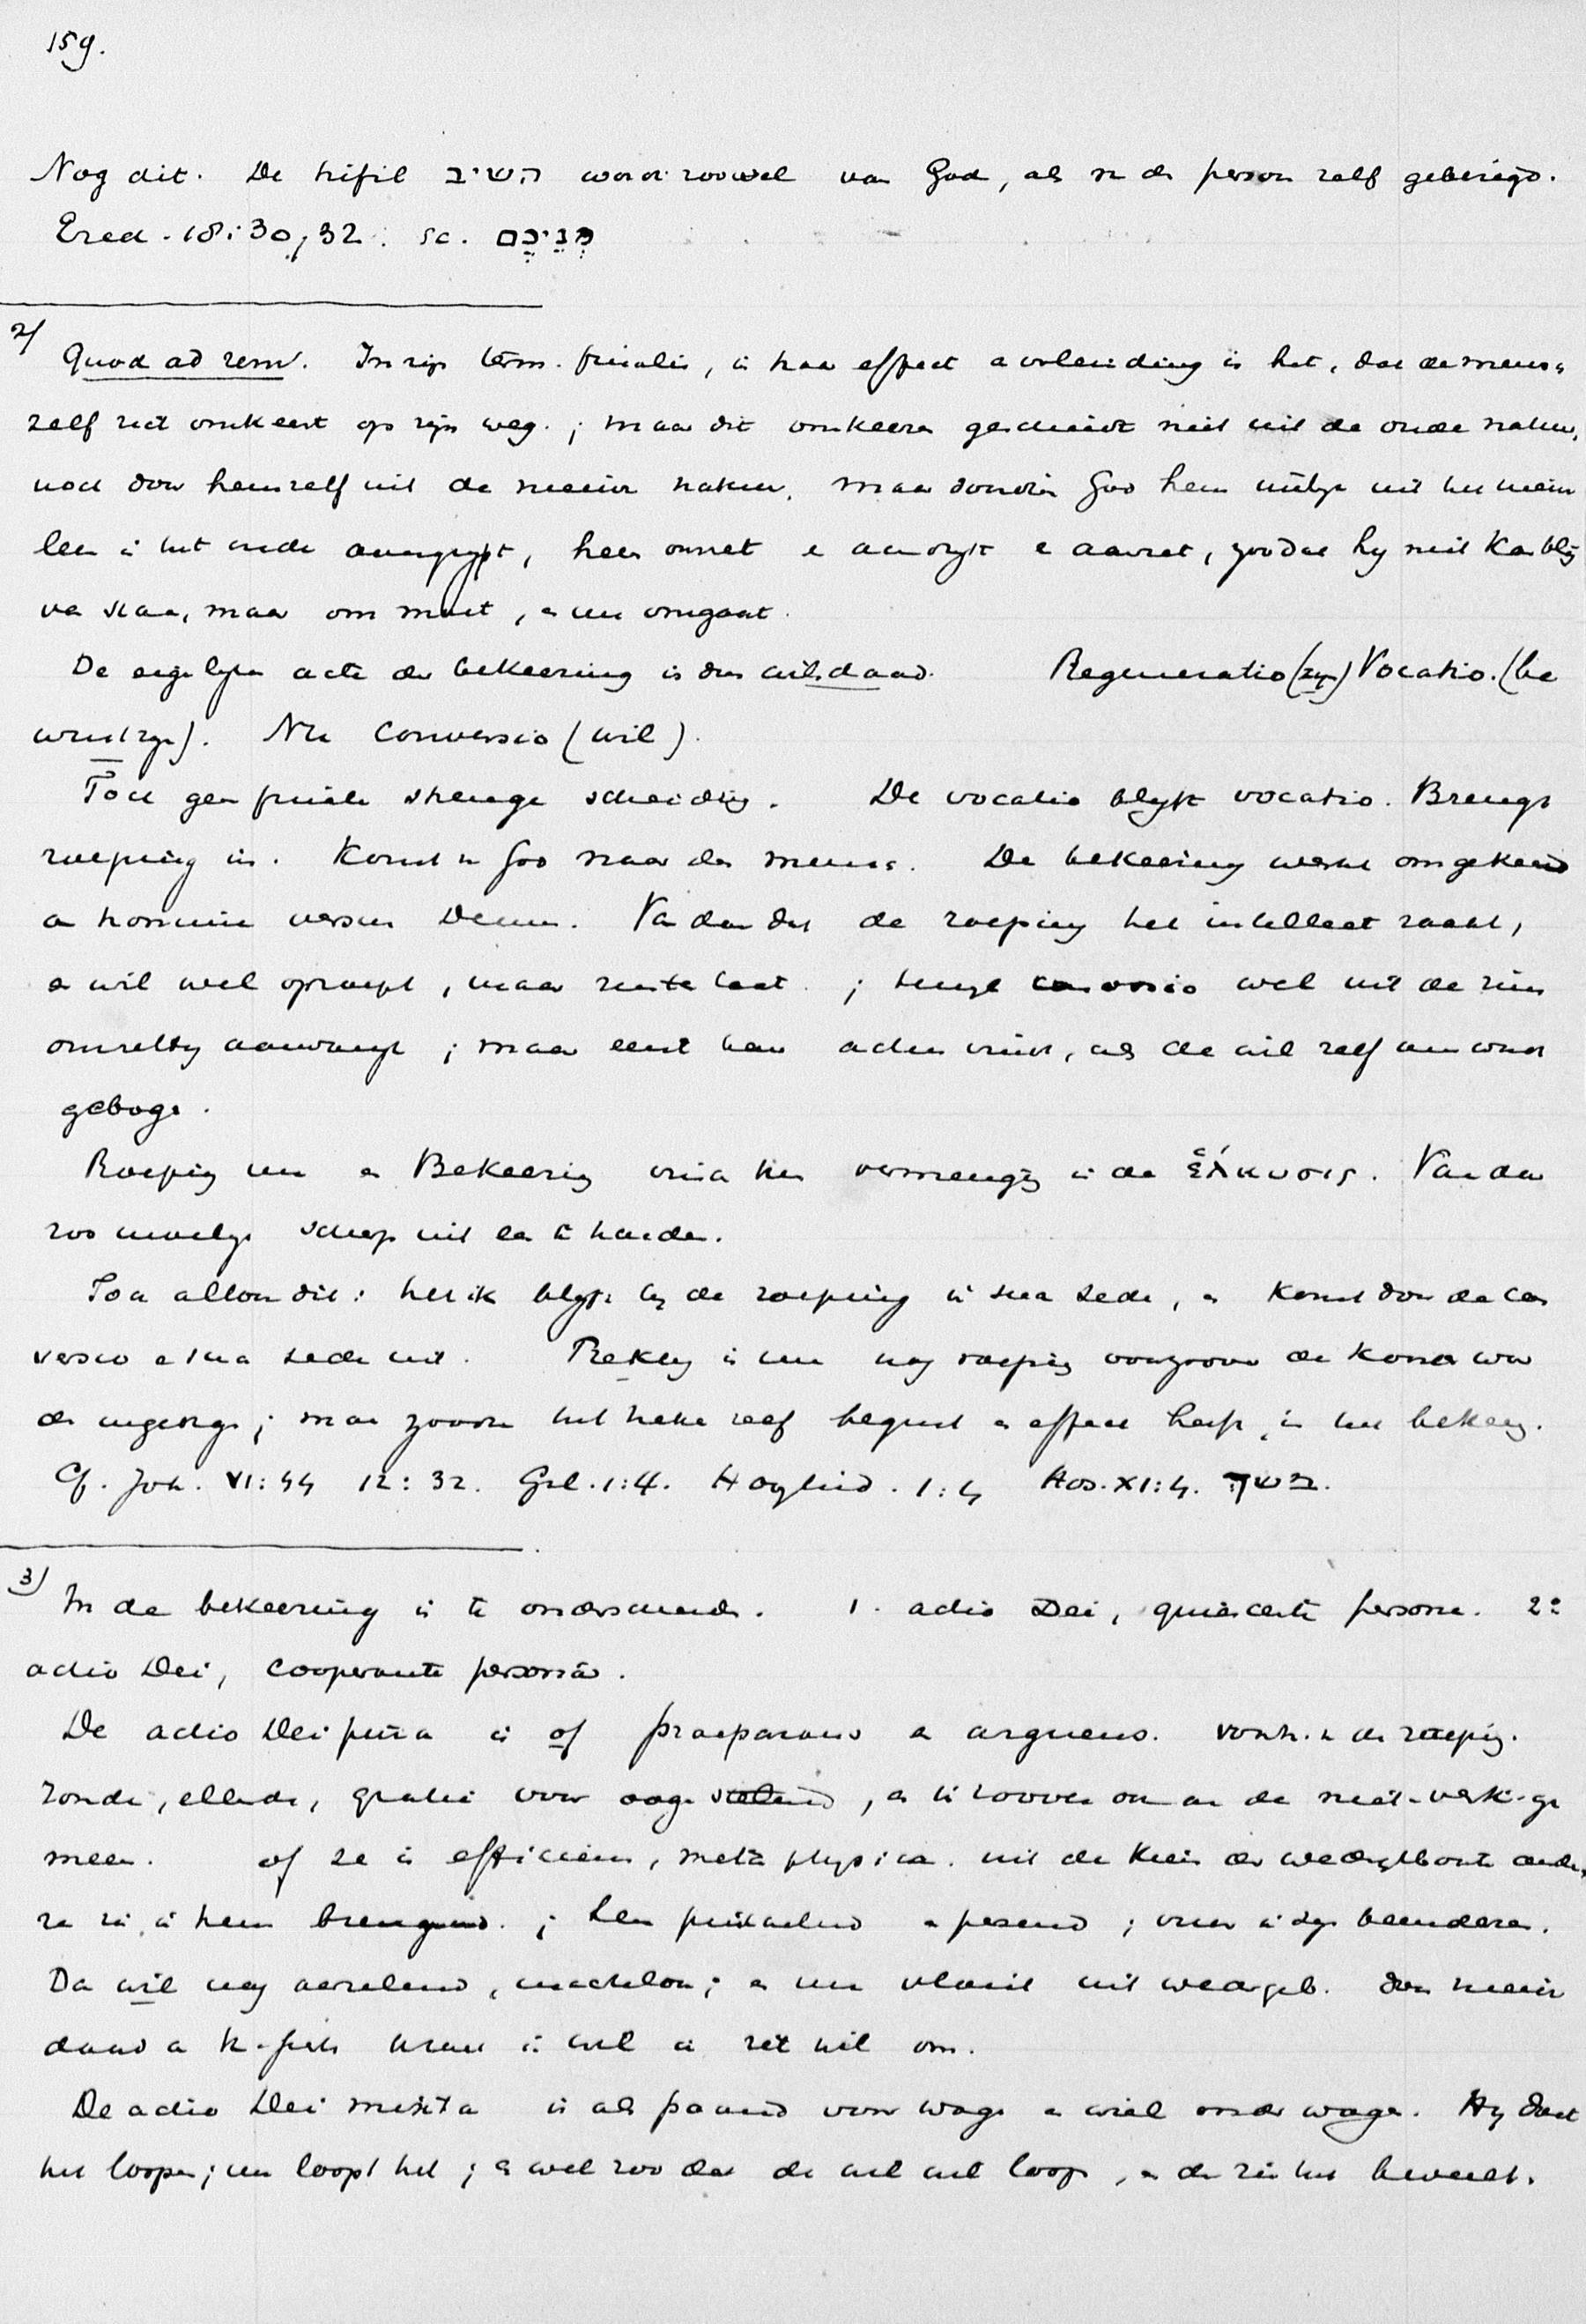 159.
Nog dit. De hifil השיב wordt zoowel van God, als v. d. persoon zelf gebezigd.
Ezech. 18:30, 32. sc. פְּנֵיכֶם
2/ Quod ad rem. In zijn term. finalis, in haar effect en voleinding is het, dat de mensch
zelf zich omkeert op zijn weg; maar dit omkeeren geschiedt niet uit de oude natuur,
noch door hemzelf uit de nieuwe natuur, maar doordien God hem uit het nieuwe
leven in het oude aangrijpt, hem omzet en aandrijft en aanzet, zoodat hij niet kan blij
ven staan, maar om moet, en nu omgaat.
De eigenlijke acte der bekeering is dus wilsdaad. Regeneratio (zijn) Vocatio. (be
wustzijn). Nu Conversio (wil).
Toch geen finale strenge scheiding. De vocatio blijft vocatio. Brengt
roeping in. Komt v. God naar den mensch. De bekeering werkt omgekeerd
ab homine versus Deum. Vandaar dat de roeping het intellect raakt,
en wil wel oproept, maar rusten laat; terwijl conversio wel uit de zins
omzetting aanvangt; maar eerst haar actum vindt, als de wil zelf om wordt
gebogen.
Roeping nu en Bekeering vinden hun vermenging in de ἕλκυσις. Vandaar
zoo moeilijk scherp uit een te houden.
Toch altoos dit: het ik blijft bij de roeping in sua sede, en komt door de con
versio e sua sede uit. Trekking is nu nog roeping voorzoover de koorden wor
den ; maar zoover het trekken zelf begint en effect heeft, is het bekeering.
Cf. Joh. VI:44 12:32. Gal. 1:4. Hooglied. 1:4 Hos. XI:4. משך.
3/ In de bekeering is te onderscheiden. 1. actio Dei, quiescente persona. 2º
actio Dei, cooperante persona.
De actio Dei pura is of praeparans en arguens. voortz. v. de roeping.
Zonde, ellende, gratie voor oogen stellend, en in zoover ook aan de niet-verk. ge
meen. of ze is efficiens, metaphysica. uit de kiem der wedergeboorte andere
zin in hem brengend; hem prikkelend en persend; vuur in zijn beenderen.
De wil nog aarzelend, machteloos; en nu vloeit uit wedergeb. door nieuwe
daad kracht in wil en zet wil om.
De actio Dei mixta is als paard voor wagen en wiel onder wagen. Hij doet
het loopen; nu loopt het; en wel zoo dat de wil wil loopen, en de zin het beveelt.